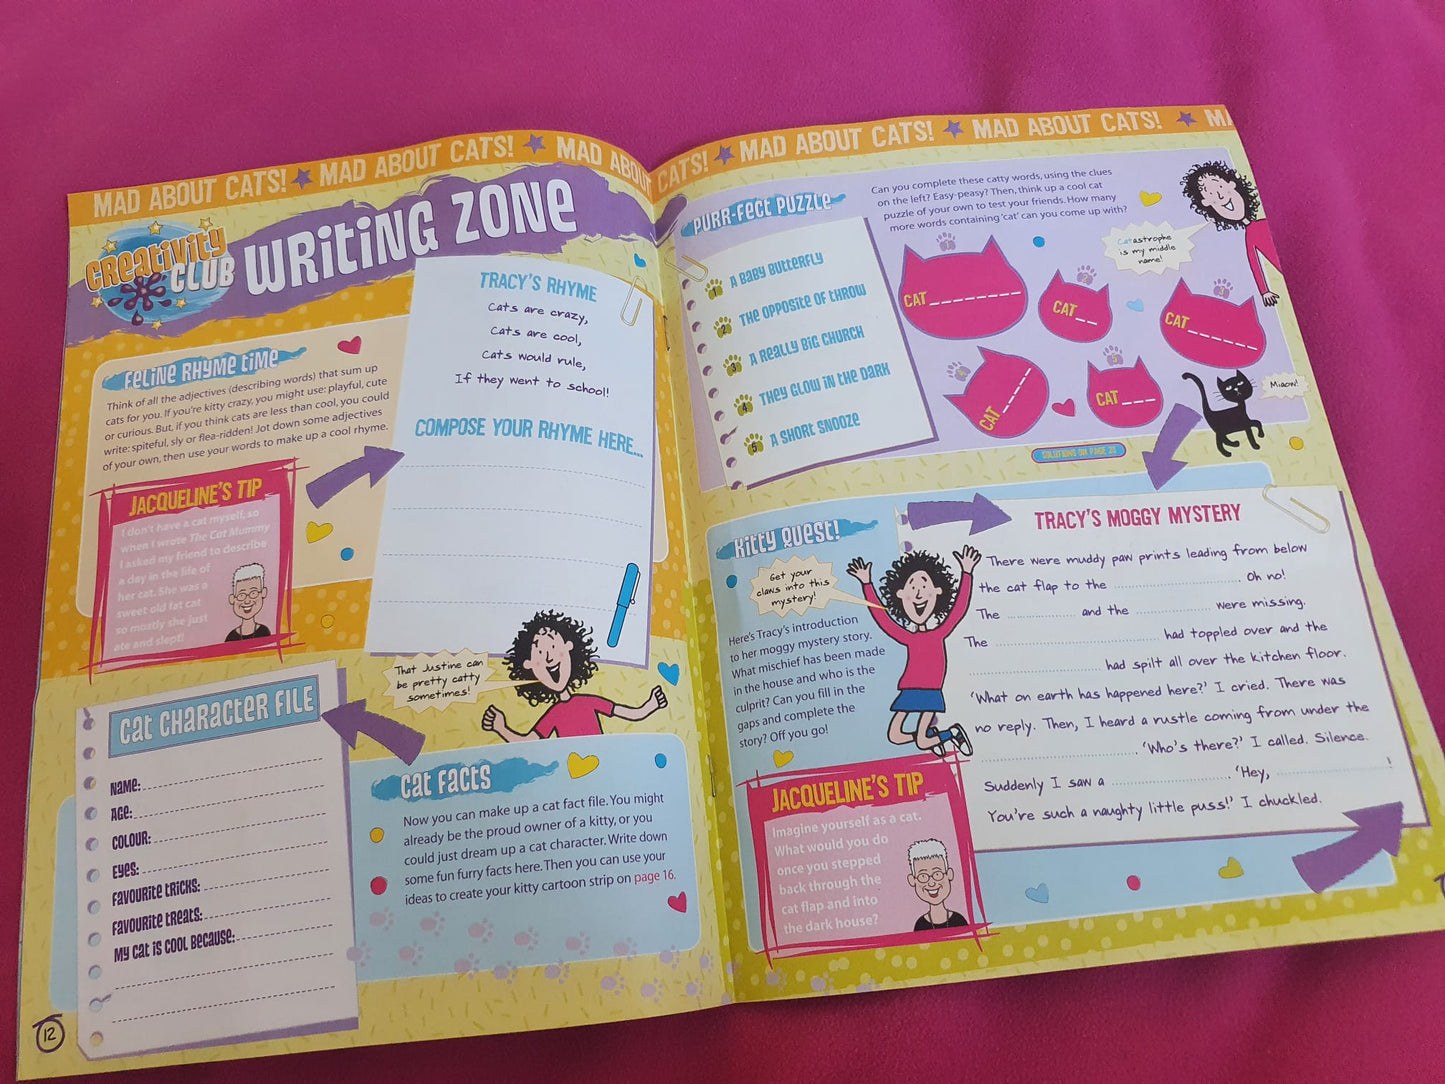 MAD ABOUT CATS! MAD ABOUT CATS! MAD ABOUT CATS! MAD ABOUT CATS! MAD ABOUT CATS!
Creativity
CLUB
WRITING ZONE
FELINE RHYME TIME
Think of all the adjectives (describing words) that sum up
cats for you. If you're kitty crazy, you might use: playful, cute
or curious. But, if you think cats are less than cool, you could
write: spiteful, sly or flea-ridden! Jot down some adjectives
of your own, then use your words to make up a cool rhyme.
JACQUELINE'S TIP
I don't have a cat myself, so
when I wrote The Cat Mummy
I asked my friend to describe
a day in the life of
her cat. She was a
sweet old fat cat
so mostly she just
ate and slept!
TRACY'S RHYME
Cats are crazy,
Cats are cool,
Cats would rule,
If they went to school!
COMPOSE YOUR RHYME HERE...
That Justine can
be pretty catty
sometimes!
CAT CHARACTER FILE
NAME:
AGE:
COLOUR:
EYES:
FAVOURITE TRICKS:
FAVOURITE TREATS:
MY CAT IS COOL BECAUSE:
CAT FACTS
Now you can make up a cat fact file. You might
already be the proud owner of a kitty, or you
could just dream up a cat character. Write down
some fun furry facts here. Then you can use your
ideas to create your kitty cartoon strip on page 16.
12
PURR-FECT PUZZLE
Can you complete these catty words, using the clues
on the left? Easy-peasy? Then, think up a cool cat
puzzle of your own to test your friends. How many
more words containing 'cat' can you come up with?
1 A BABY BUTTERFLY
2 THE OPPOSITE OF THROW
3 A REALLY BIG CHURCH
4 THEY GLOW IN THE DARK
5 A SHORT SNOOZE
1
CAT _ _ _ _ _ _ _ _
2
CAT _ _
3
CAT _ _ _ _ _ _
4
CAT _ _ _ _
5
CAT _ _ _
Catastrophe
is my middle
name!
Miaow!
SOLUTIONS ON PAGE
KITTY QUEST!
Get your
claws into this
mystery!
Here's Tracy's introduction
to her moggy mystery story.
What mischief has been made
in the house and who is the
culprit? Can you fill in the
gaps and complete the
story? Off you go!
JACQUELINE'S TIP
Imagine yourself as a cat.
What would you do
once you stepped
back through the
cat flap and into
the dark house?
TRACY'S MOGGY MYSTERY
There were muddy paw prints leading from below
the cat flap to the .......... Oh no!
The .......... and the .......... were missing.
The .......... had toppled over and the
.......... had spilt all over the kitchen floor.
'What on earth has happened here?' I cried. There was
no reply. Then, I heard a rustle coming from under the
.......... 'Who's there?' I called. Silence.
Suddenly I saw a .......... 'Hey, .......... !
You're such a naughty little puss!' I chuckled.